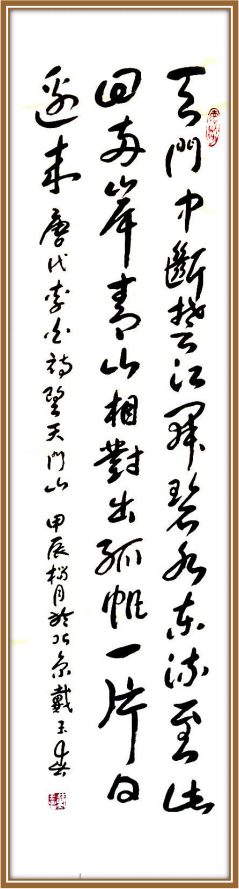 天門中斷楚江開碧水東流至此
回兩岸青山相對出孤帆一片日
邊來 唐代李白詩望天門山 甲辰 月於北京戴玉